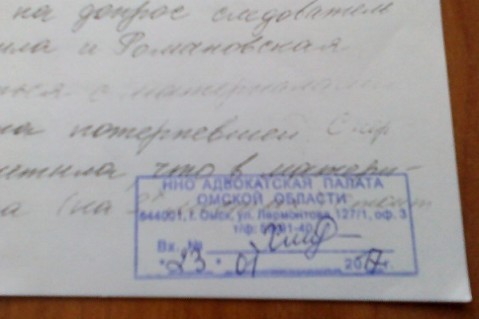 на допрос следователем
ила и Романовская
ться с материалами
на потерпевшей
етила, что в матери-
а (на
ННО АДВОКАТСКАЯ ПАЛАТА
ОМСКОЙ ОБЛАСТИ
644001, г. Омск, ул. Лермонтова, 127/1, оф. 3
Вх. №
"23" 01 2017г.